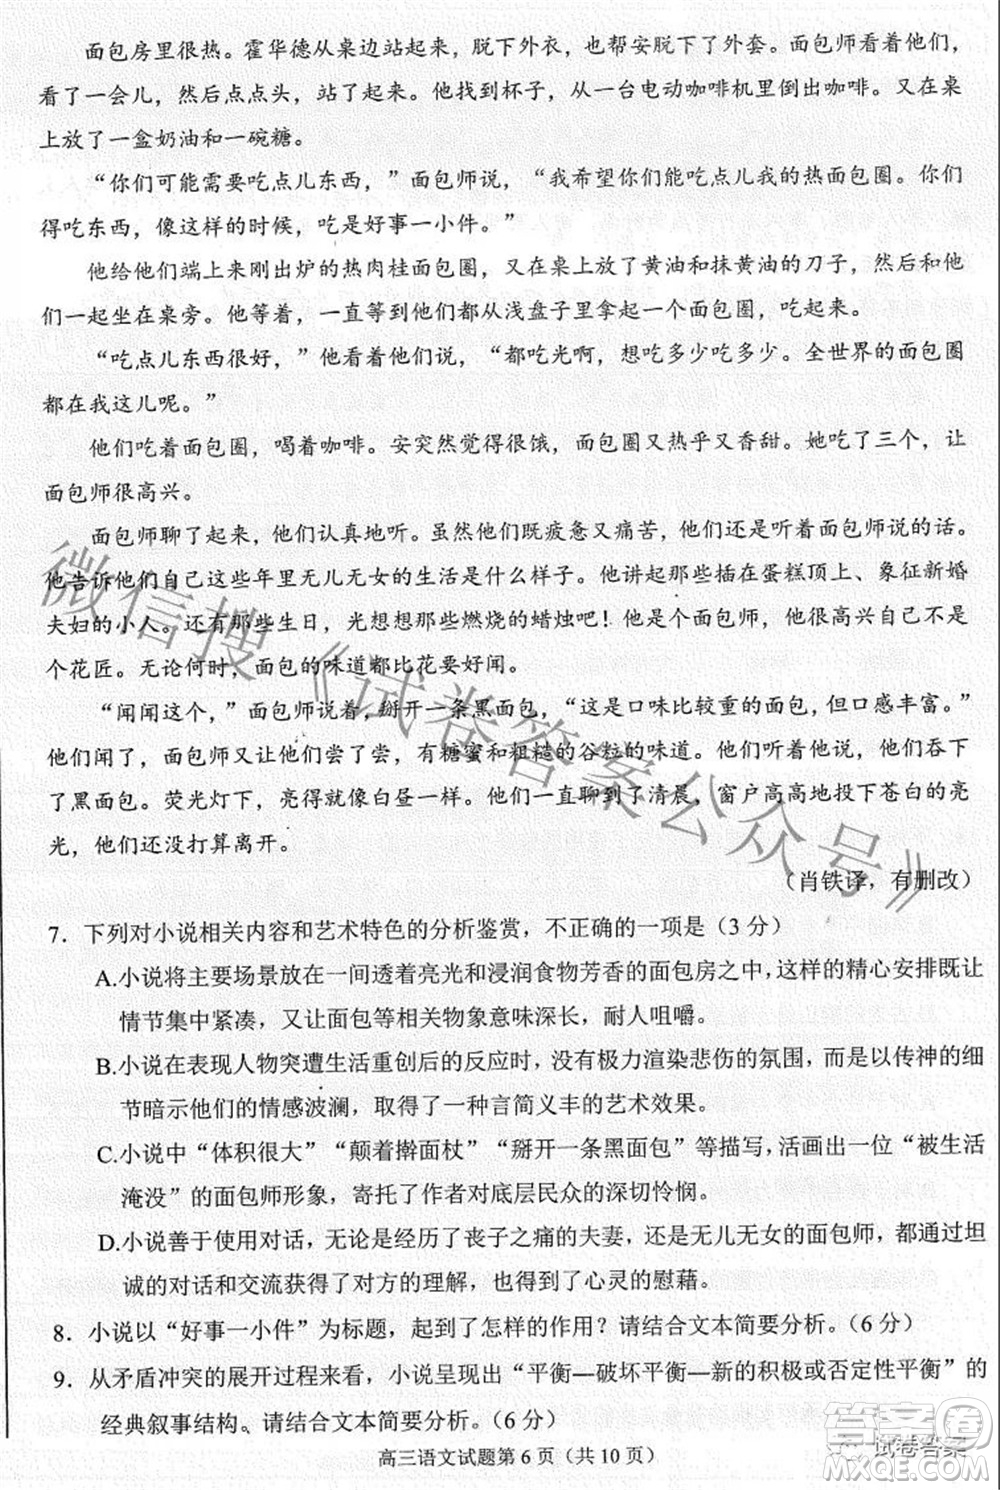 面包房里很热。霍华德从桌边站起来，脱下外衣，也帮安脱下了外套。面包师看着他们，
看了一会儿，然后点点头，站了起来。他找到杯子，从一台电动咖啡机里倒出咖啡。又在桌
上放了一盒奶油和一碗糖。
“你们可能需要吃点儿东西，”面包师说，“我希望你们能吃点儿我的热面包圈。你们
得吃东西，像这样的时候，吃是好事一小件。”
他给他们端上来刚出炉的热肉桂面包圈，又在桌上放了黄油和抹黄油的刀子，然后和他
们一起坐在桌旁。他等着，一直等到他们从浅盘子里拿起一个面包圈，吃起来。
“吃点儿东西很好，”他看着他们说，“都吃光啊，想吃多少吃多少。全世界的面包圈
都在我这儿呢。”
他们吃着面包圈，喝着咖啡。安突然觉得很饿，面包圈又热乎又香甜。她吃了三个，让
面包师很高兴。
面包师聊了起来，他们认真地听。虽然他们既疲惫又痛苦，他们还是听着面包师说的话。
他告诉他们自己这些年里无儿无女的生活是什么样子。他讲起那些插在蛋糕顶上、象征新婚
夫妇的小人。还有那些生日，光想想那些燃烧的蜡烛吧！他很高兴自己是个面包师，而不是
个花匠。无论何时，面包的味道都比花要好闻。
“闻闻这个，”面包师说着，掰开一条黑面包，“这是口味比较重的面包，但口感丰富。”
他们闻了闻，面包师又让他们尝了尝，有糖蜜和粗糙的谷粒的味道。他们听着他说，他们吞下
了黑面包。荧光灯下，亮得就像白昼一样。他们一直聊到了清晨，窗户高高地投下苍白的亮
光，他们还没打算离开。
（肖铁译，有删改）
7．下列对小说相关内容和艺术特色的分析鉴赏，不正确的一项是（3 分）
A.小说将主要场景放在一间透着亮光和浸润食物芳香的面包房之中，这样的精心安排既让
情节集中紧凑，又让面包等相关物象意味深长，耐人咀嚼。
B.小说在表现人物突遭生活重创后的反应时，没有极力渲染悲伤的氛围，而是以传神的细
节暗示他们的情感波澜，取得了一种言简义丰的艺术效果。
C.小说中“体积很大”“颠着擀面杖”“掰开一条黑面包”等描写，活画出一位“被生活
淹没”的面包师形象，寄托了作者对底层民众的深切怜悯。
D.小说善于使用对话，无论是经历了丧子之痛的夫妻，还是无儿无女的面包师，都通过坦
诚的对话和交流获得了对方的理解，也得到了心灵的慰藉。
8．小说以“好事一小件”为标题，起到了怎样的作用？请结合文本简要分析。（6 分）
9．从矛盾冲突的展开过程来看，小说呈现出“平衡—破坏平衡—新的积极或否定性平衡”的
经典叙事结构。请结合文本简要分析。（6 分）
高三语文试题第 6 页（共 10 页）
微信搜《试卷答案公众号》
试卷答案
答案圈
MXQE.COM